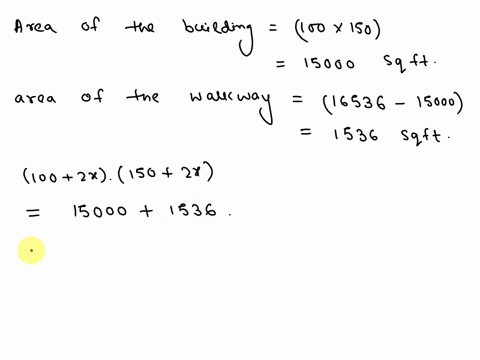 Area of the building = (100 × 150)
= 15000 sqft.
area of the walkway = (16536 - 15000)
= 1536 sqft.
(100 + 2x). (150 + 2x)
= 15000 + 1536.